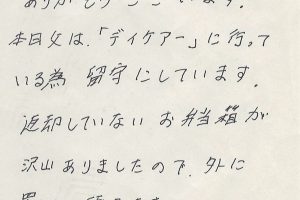 ありがとうございます.
本日父は、「デイケアー」に行って
いる為 留守にしています.
返却していない お弁当箱が
沢山ありましたので、外に